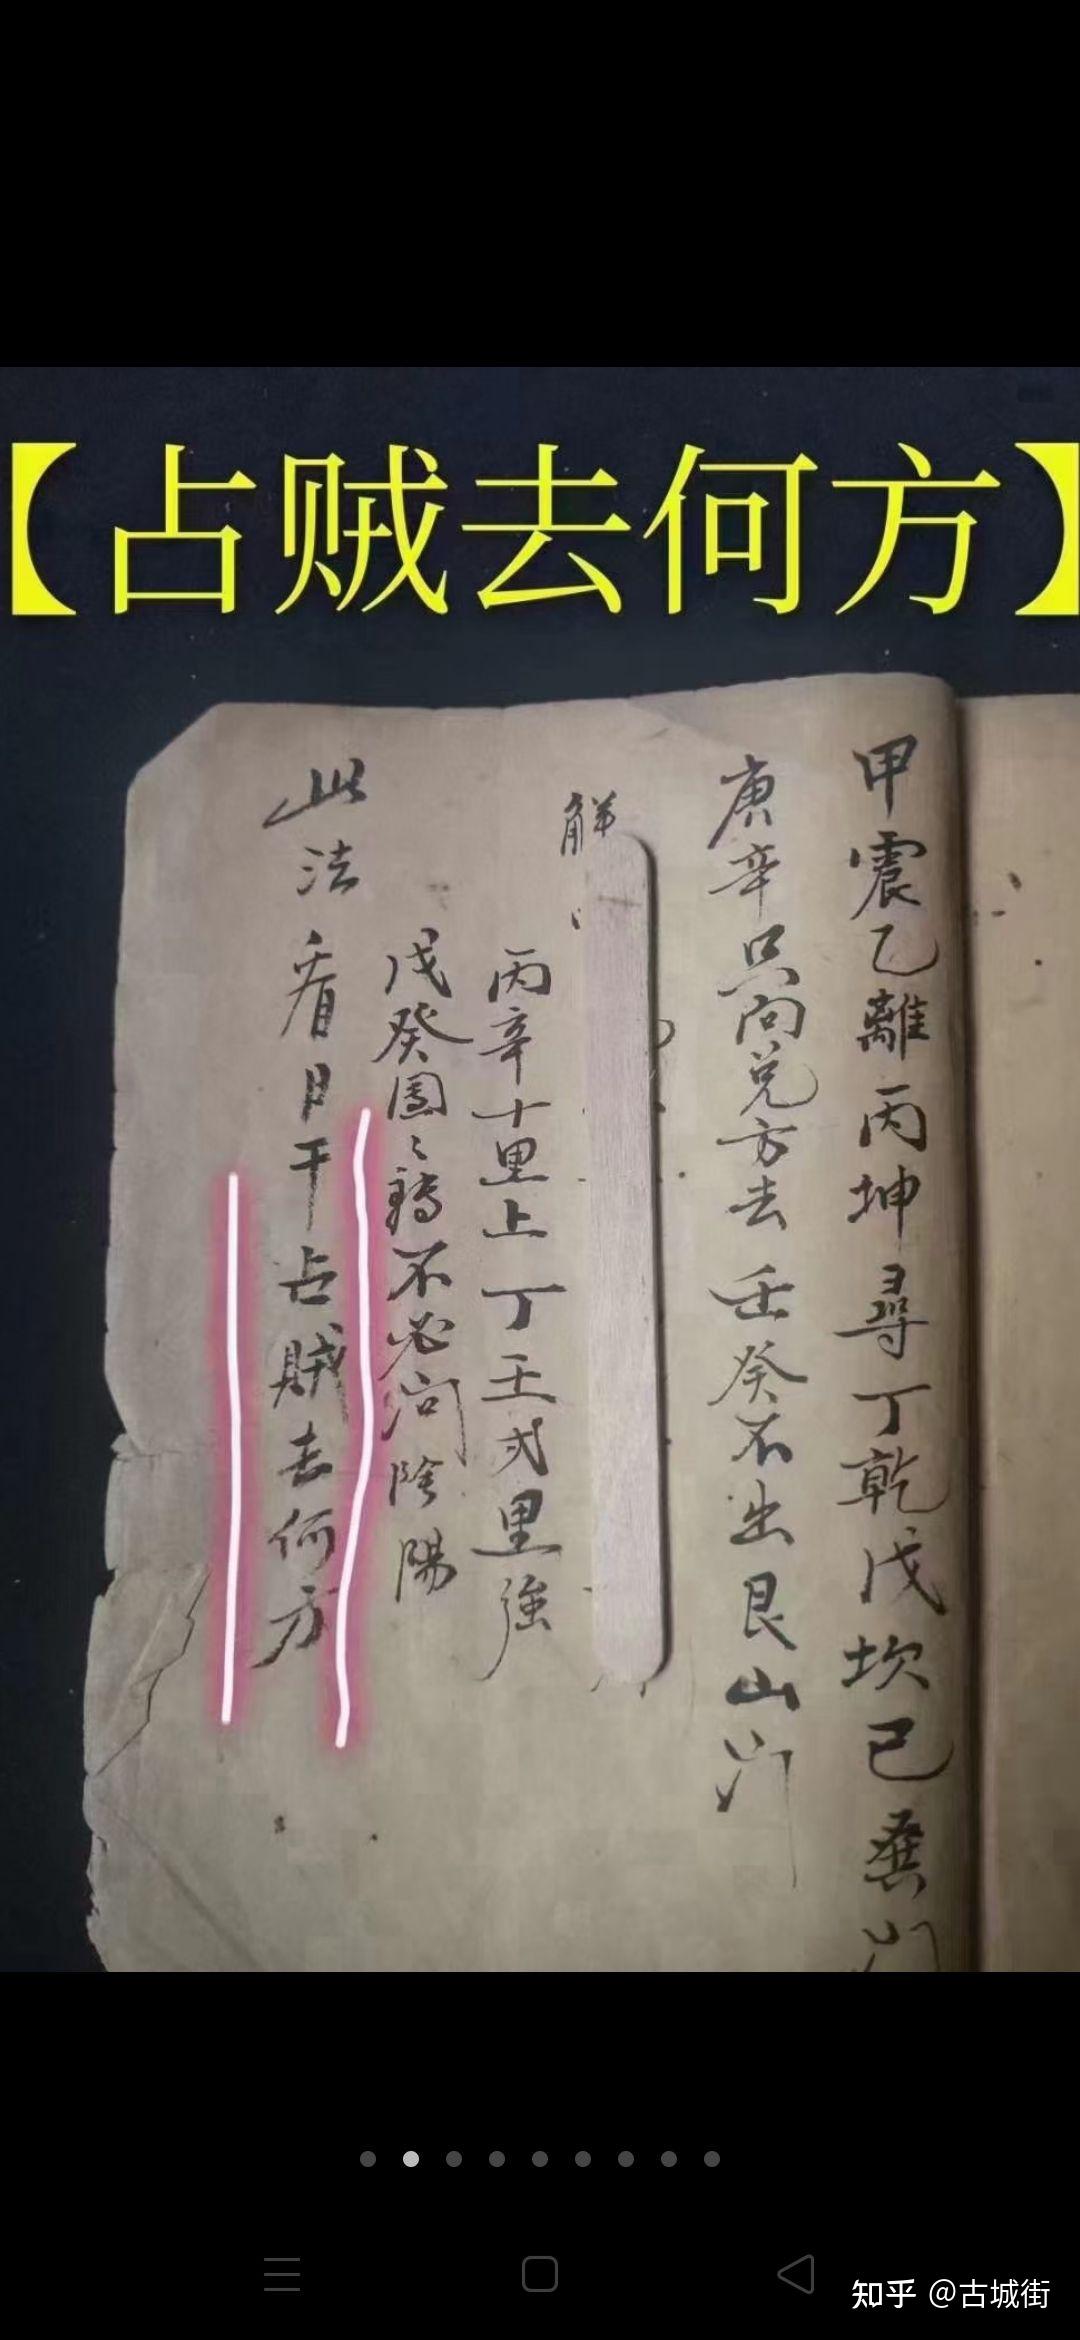 【占贼去何方】
甲震乙離丙坤尋丁乾戊坎己巽門
庚辛只向兑方去壬癸不出艮山門
解
丙辛十里上丁壬式里強
戊癸團〻轉不必问陰陽
此法看日干占賊去何方
知乎 @古城街